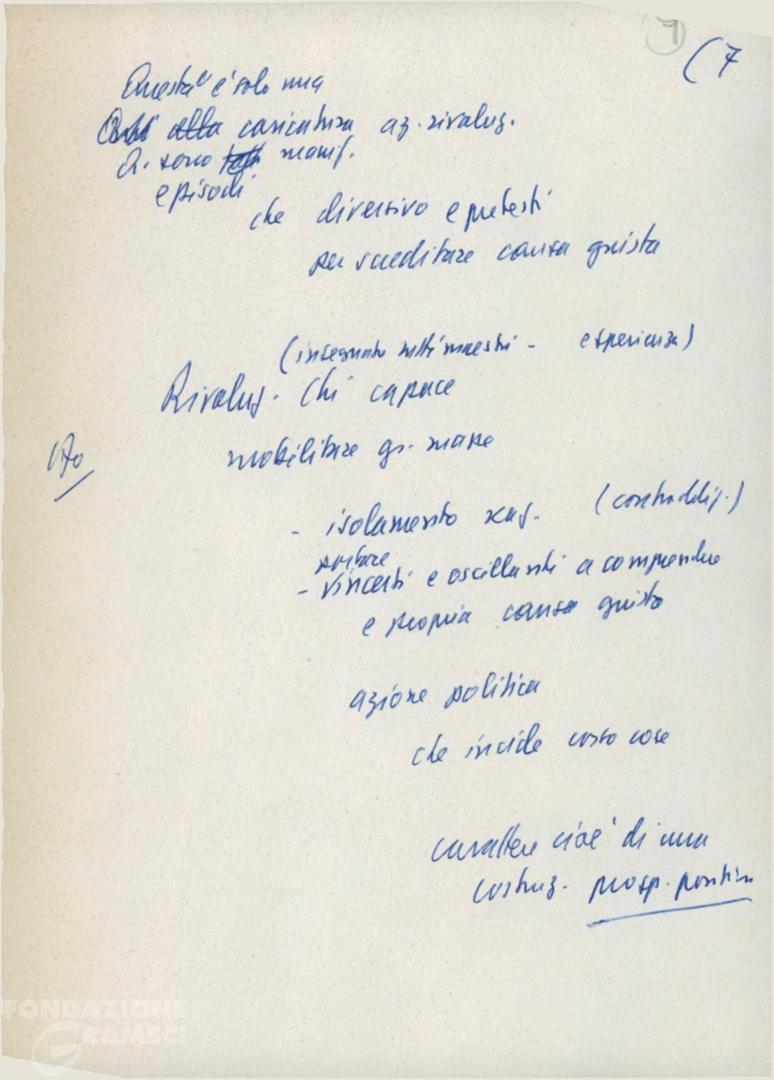 9
(7
Questa è solo una
alla caricatura az. rivoluz.
Ci sono manif.
episodi
che diversivo e pretesti
per screditare causa giusta
(insegnato tutti maestri - esperienza)
Rivoluz. chi capace
mobilitare gr. masse
- isolamento (contraddiz.)
portare
- incerti e oscillanti a comprendere
e propria causa giusta
azione politica
che incide corso cose
carattere cioè di una
costruz. prosp. positiva
FONDAZIONE
GRAMSCI